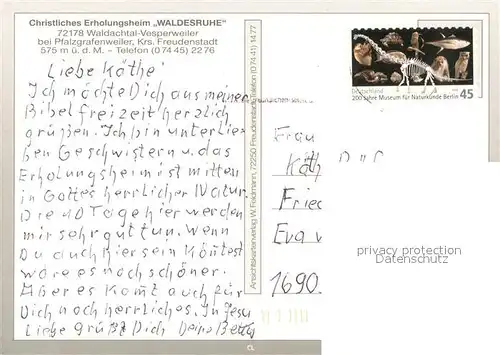 Christliches Erholungsheim „WALDESRUHE"
72178 Waldachtal-Vesperweiler
bei Pfalzgrafenweiler, Krs. Freudenstadt
575 m ü. d. M. – Telefon (0 74 45) 22 76
Liebe Käthe
Ich möchte Dich aus meiner
Bibelfreizeit herzlich
grüßen. Ich bin unter lie-
ben Geschwistern u. das
Erholungsheim ist mitten
in Gottes herrlicher Natur.
Die 10 Tage hier werden
mir sehr gut tun. Wenn
Du auch hier sein könntest
wäre es noch schöner.
Aber es komt auch für
Dich noch herrliches. In Jesu
Liebe grüßt Dich Deine
Ansichtskartenverlag W. Feldmann, 72250 Freudenstadt, Telefon (0 74 41) 14 77
Deutschland
45
200 Jahre Museum für Naturkunde Berlin
Frau
Käth
Fried
Eva
1690
privacy protection
Datenschutz